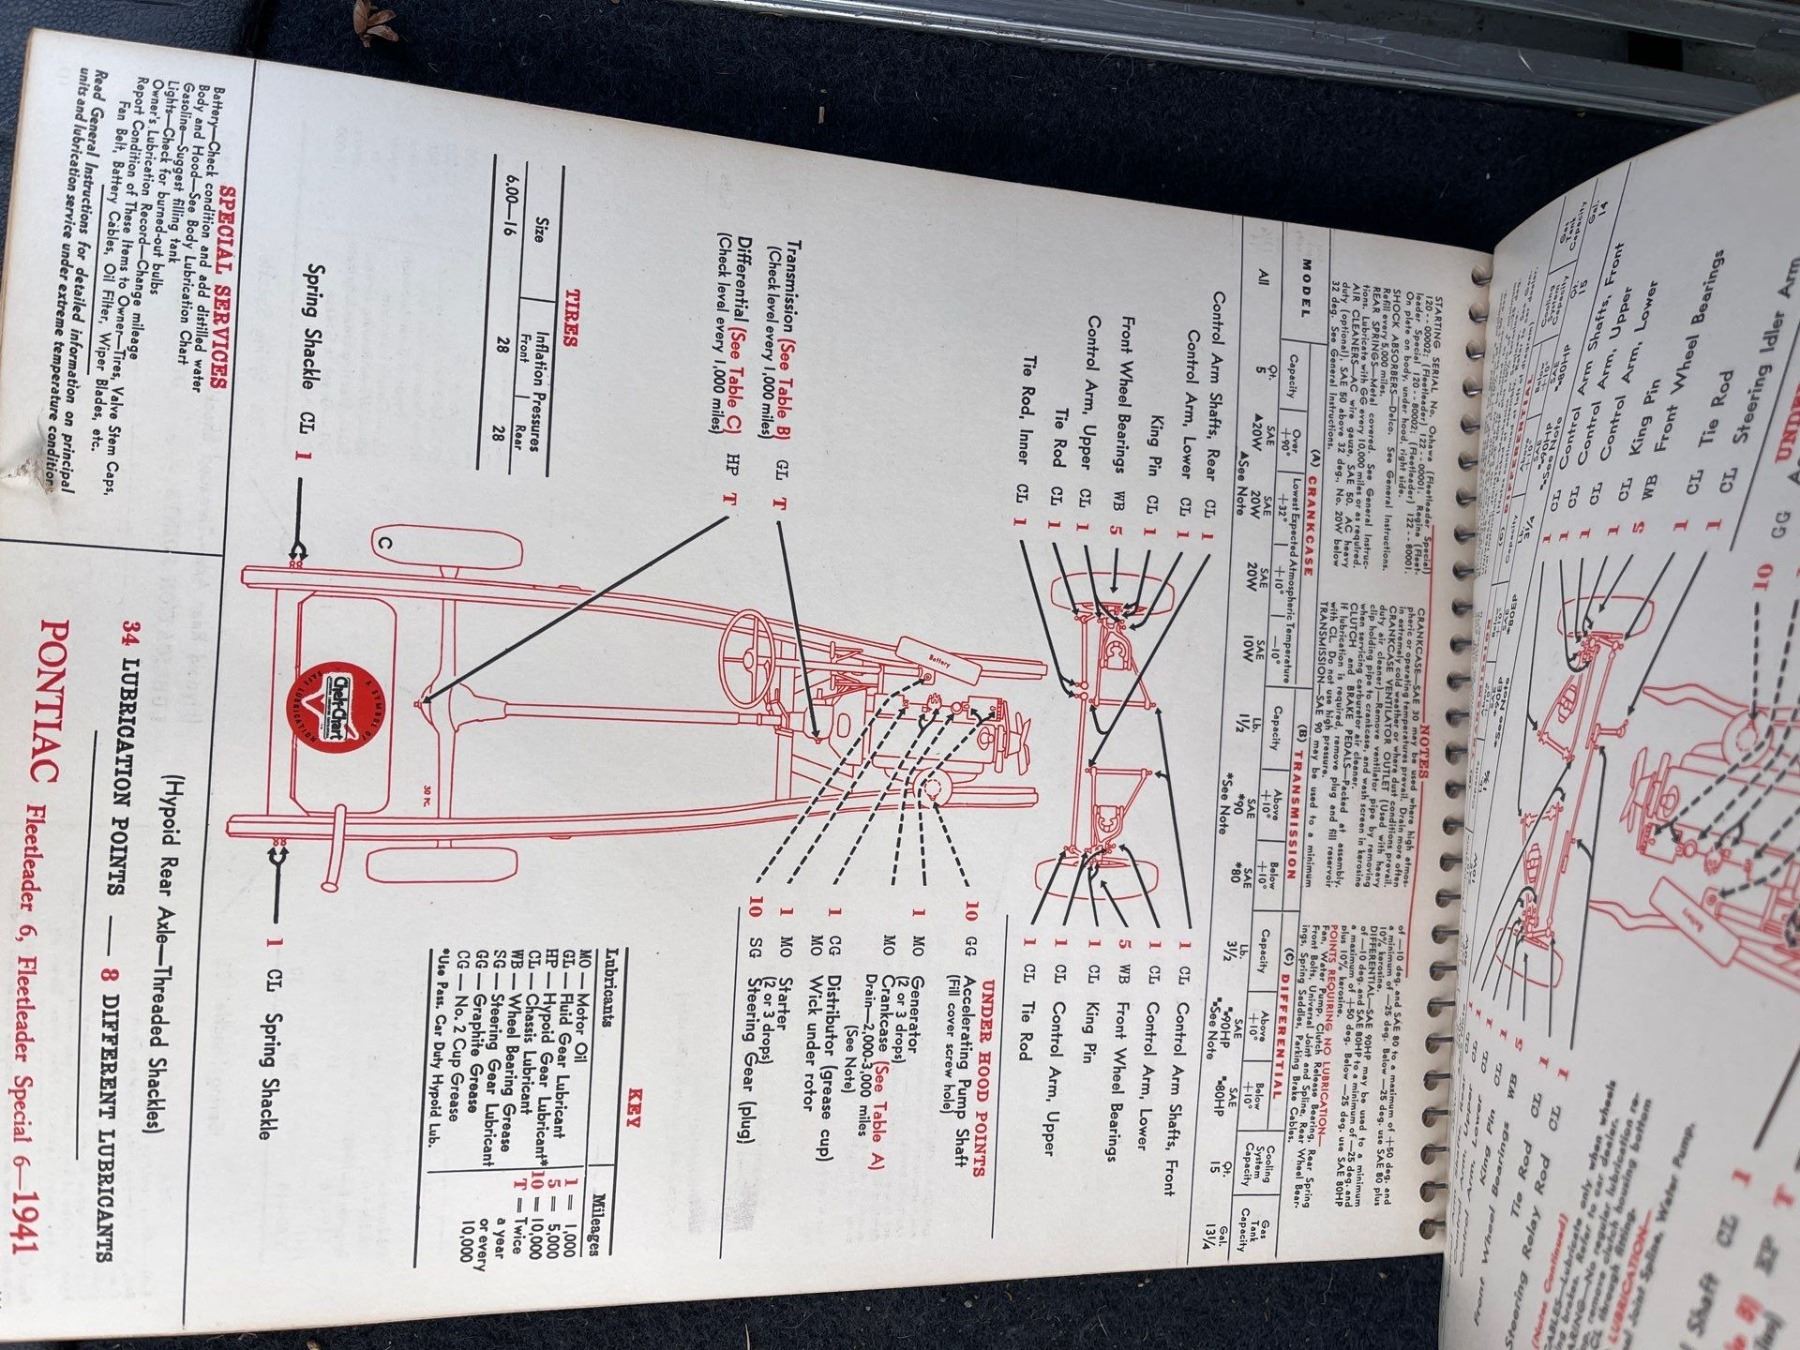 NOTES
STARTING SERIAL No. Oshawa (Fleetleader Special)
120--00002; (Fleetleader) 122--00001. Regina (Fleet-
leader Special) 120--80002; (Fleetleader) 122--80001.
On plate on body, under hood, right side.
SHOCK ABSORBERS—Delco. See General Instructions.
Refill every 5,000 miles.
REAR SPRINGS—Metal covered. See General Instruc-
tions. Lubricate with GG every 10,000 miles or as required.
AIR CLEANERS—AC wire gauze, SAE 50. AC heavy
duty (optional), SAE 50 above 32 deg., No. 20W below
32 deg. See General Instructions.
CRANKCASE—SAE 30 may be used where high atmos-
pheric or operating temperatures prevail. Drain more often
in extremely cold weather or where dust conditions prevail.
CRANKCASE VENTILATOR OUTLET (Used with heavy
duty air cleaner)—Remove ventilator pipe by removing
clip holding pipe to crankcase, and wash screen in kerosine
when servicing carburetor air cleaner.
CLUTCH and BRAKE PEDALS—Packed at assembly.
If lubrication is required, remove plug and fill reservoir
with CL. Do not use high pressure.
TRANSMISSION—SAE 90 may be used to a minimum
of —10 deg. and SAE 80 to a maximum of +50 deg. and
a minimum of —25 deg. Below —25 deg. use SAE 80 plus
10% kerosine.
DIFFERENTIAL—SAE 90HP may be used to a minimum
of —10 deg. and SAE 80HP to a minimum of —25 deg. and
a maximum of +50 deg. Below —25 deg. use SAE 80HP
plus 10% kerosine.
POINTS REQUIRING NO LUBRICATION—
Fan, Water Pump, Clutch Release Bearing, Rear Spring
Front Bolts, Universal Joint and Spline, Rear Wheel Bear-
ings, Spring Saddles, Parking Brake Cables.
MODEL
(A) CRANKCASE
(B) TRANSMISSION
(C) DIFFERENTIAL
Cooling System Capacity
Gas Tank Capacity
Capacity
Over +90°
Lowest Expected Atmospheric Temperature
+32° +10° —10°
Capacity
Above +10°
Below +10°
Capacity
Above +10°
Below +10°
All
Qt. 5
SAE ▲20W
SAE 20W
SAE 20W
SAE 10W
▲See Note
Lb. 1½
SAE *90
SAE *80
*See Note
Lb. 3½
SAE **90HP
SAE **80HP
**See Note
Qt. 15
Gal. 13¼
Control Arm Shafts, Rear CL 1
Control Arm, Lower CL 1
King Pin CL 1
Front Wheel Bearings WB 5
Control Arm, Upper CL 1
Tie Rod CL 1
Tie Rod, Inner CL 1
1 CL Control Arm Shafts, Front
1 CL Control Arm, Lower
5 WB Front Wheel Bearings
1 CL King Pin
1 CL Control Arm, Upper
1 CL Tie Rod
UNDER HOOD POINTS
10 GG Accelerating Pump Shaft
(Fill cover screw hole)
1 MO Generator
(2 or 3 drops)
MO Crankcase (See Table A)
Drain—2,000-3,000 miles
(See Note)
1 CG Distributor (grease cup)
MO Wick under rotor
1 MO Starter
(2 or 3 drops)
10 SG Steering Gear (plug)
Transmission (See Table B) GL T
(Check level every 1,000 miles)
Differential (See Table C) HP T
(Check level every 1,000 miles)
Battery
30 PC.
C
TIRES
Size
Inflation Pressures
Front Rear
6.00—16 28 28
KEY
Lubricants
Mileages
MO—Motor Oil
GL—Fluid Gear Lubricant
HP—Hypoid Gear Lubricant*
CL—Chassis Lubricant
WB—Wheel Bearing Grease
SG—Steering Gear Lubricant
GG—Graphite Grease
CG—No. 2 Cup Grease
*Use Pass. Car Duty Hypoid Lub.
1 = 1,000
5 = 5,000
10 = 10,000
T = Twice
a year
or every
10,000
Spring Shackle CL 1
1 CL Spring Shackle
A SYMBOL OF
Chek-Chart
SAFE LUBRICATION
SPECIAL SERVICES
Battery—Check condition and add distilled water
Body and Hood—See Body Lubrication Chart
Gasoline—Suggest filling tank
Lights—Check for burned-out bulbs
Owner's Lubrication Record—Change mileage
Report Condition of These Items to Owner—Tires, Valve Stem Caps,
Fan Belt, Battery Cables, Oil Filter, Wiper Blades, etc.
Read General Instructions for detailed information on principal
units and lubrication service under extreme temperature condition
(Hypoid Rear Axle—Threaded Shackles)
34 LUBRICATION POINTS — 8 DIFFERENT LUBRICANTS
PONTIAC Fleetleader 6, Fleetleader Special 6—1941
Steering Idler Arm
CL Tie Rod
CL Front Wheel Bearings
WB King Pin
CL Control Arm, Lower
CL Control Arm, Upper
CL Control Arm Shafts, Front
Steering Relay Rod
Tie Rod